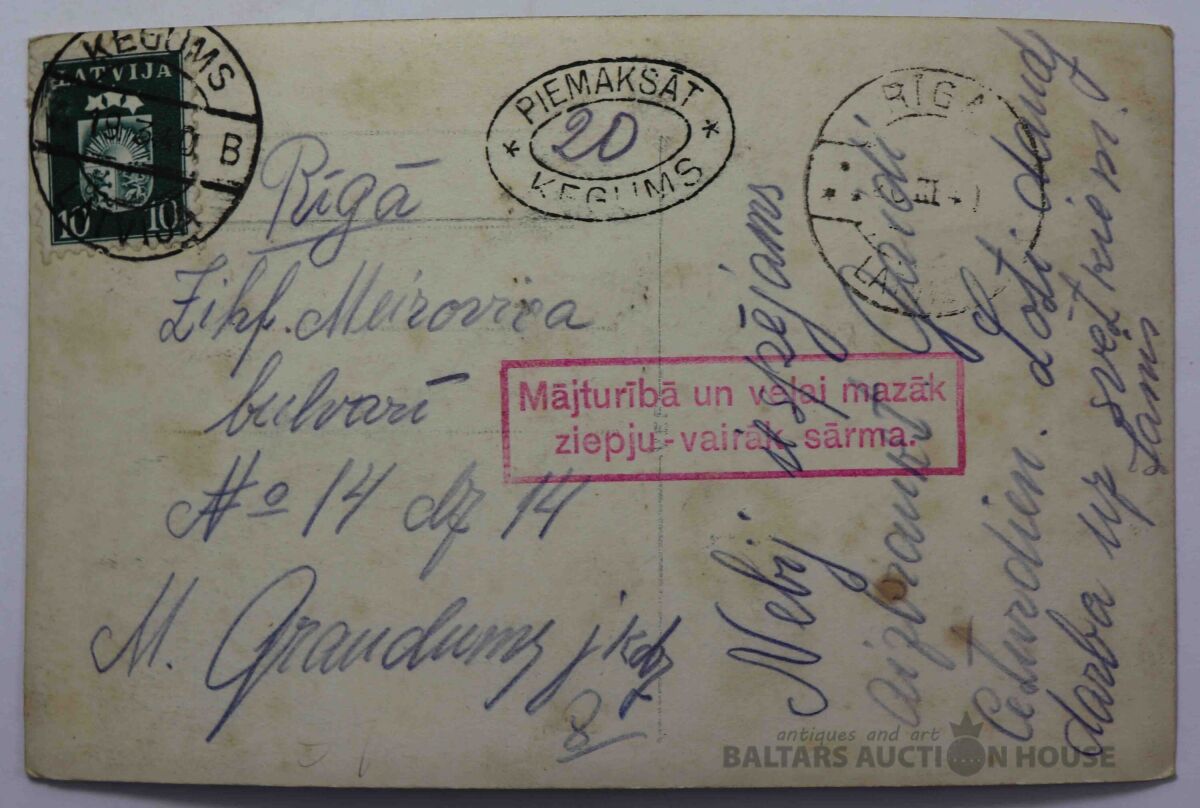 ĶEGUMS
LATVIJA
19 3 40 B
10 10
PIEMAKSĀT
20
ĶEGUMS
RĪGA
III
Rīgā
Zihf. Meirovica
bulvarī
No 14 dz 14
M. Graudums
Mājturībā un veļai mazāk
ziepju - vairāk sārma.
Nebij iespējams
aizbraukt Gaidi
Ceturdien. Ļoti daudz
darba uz svētkiem!
Jānis
antiques and art
BALTARS AUCTION HOUSE